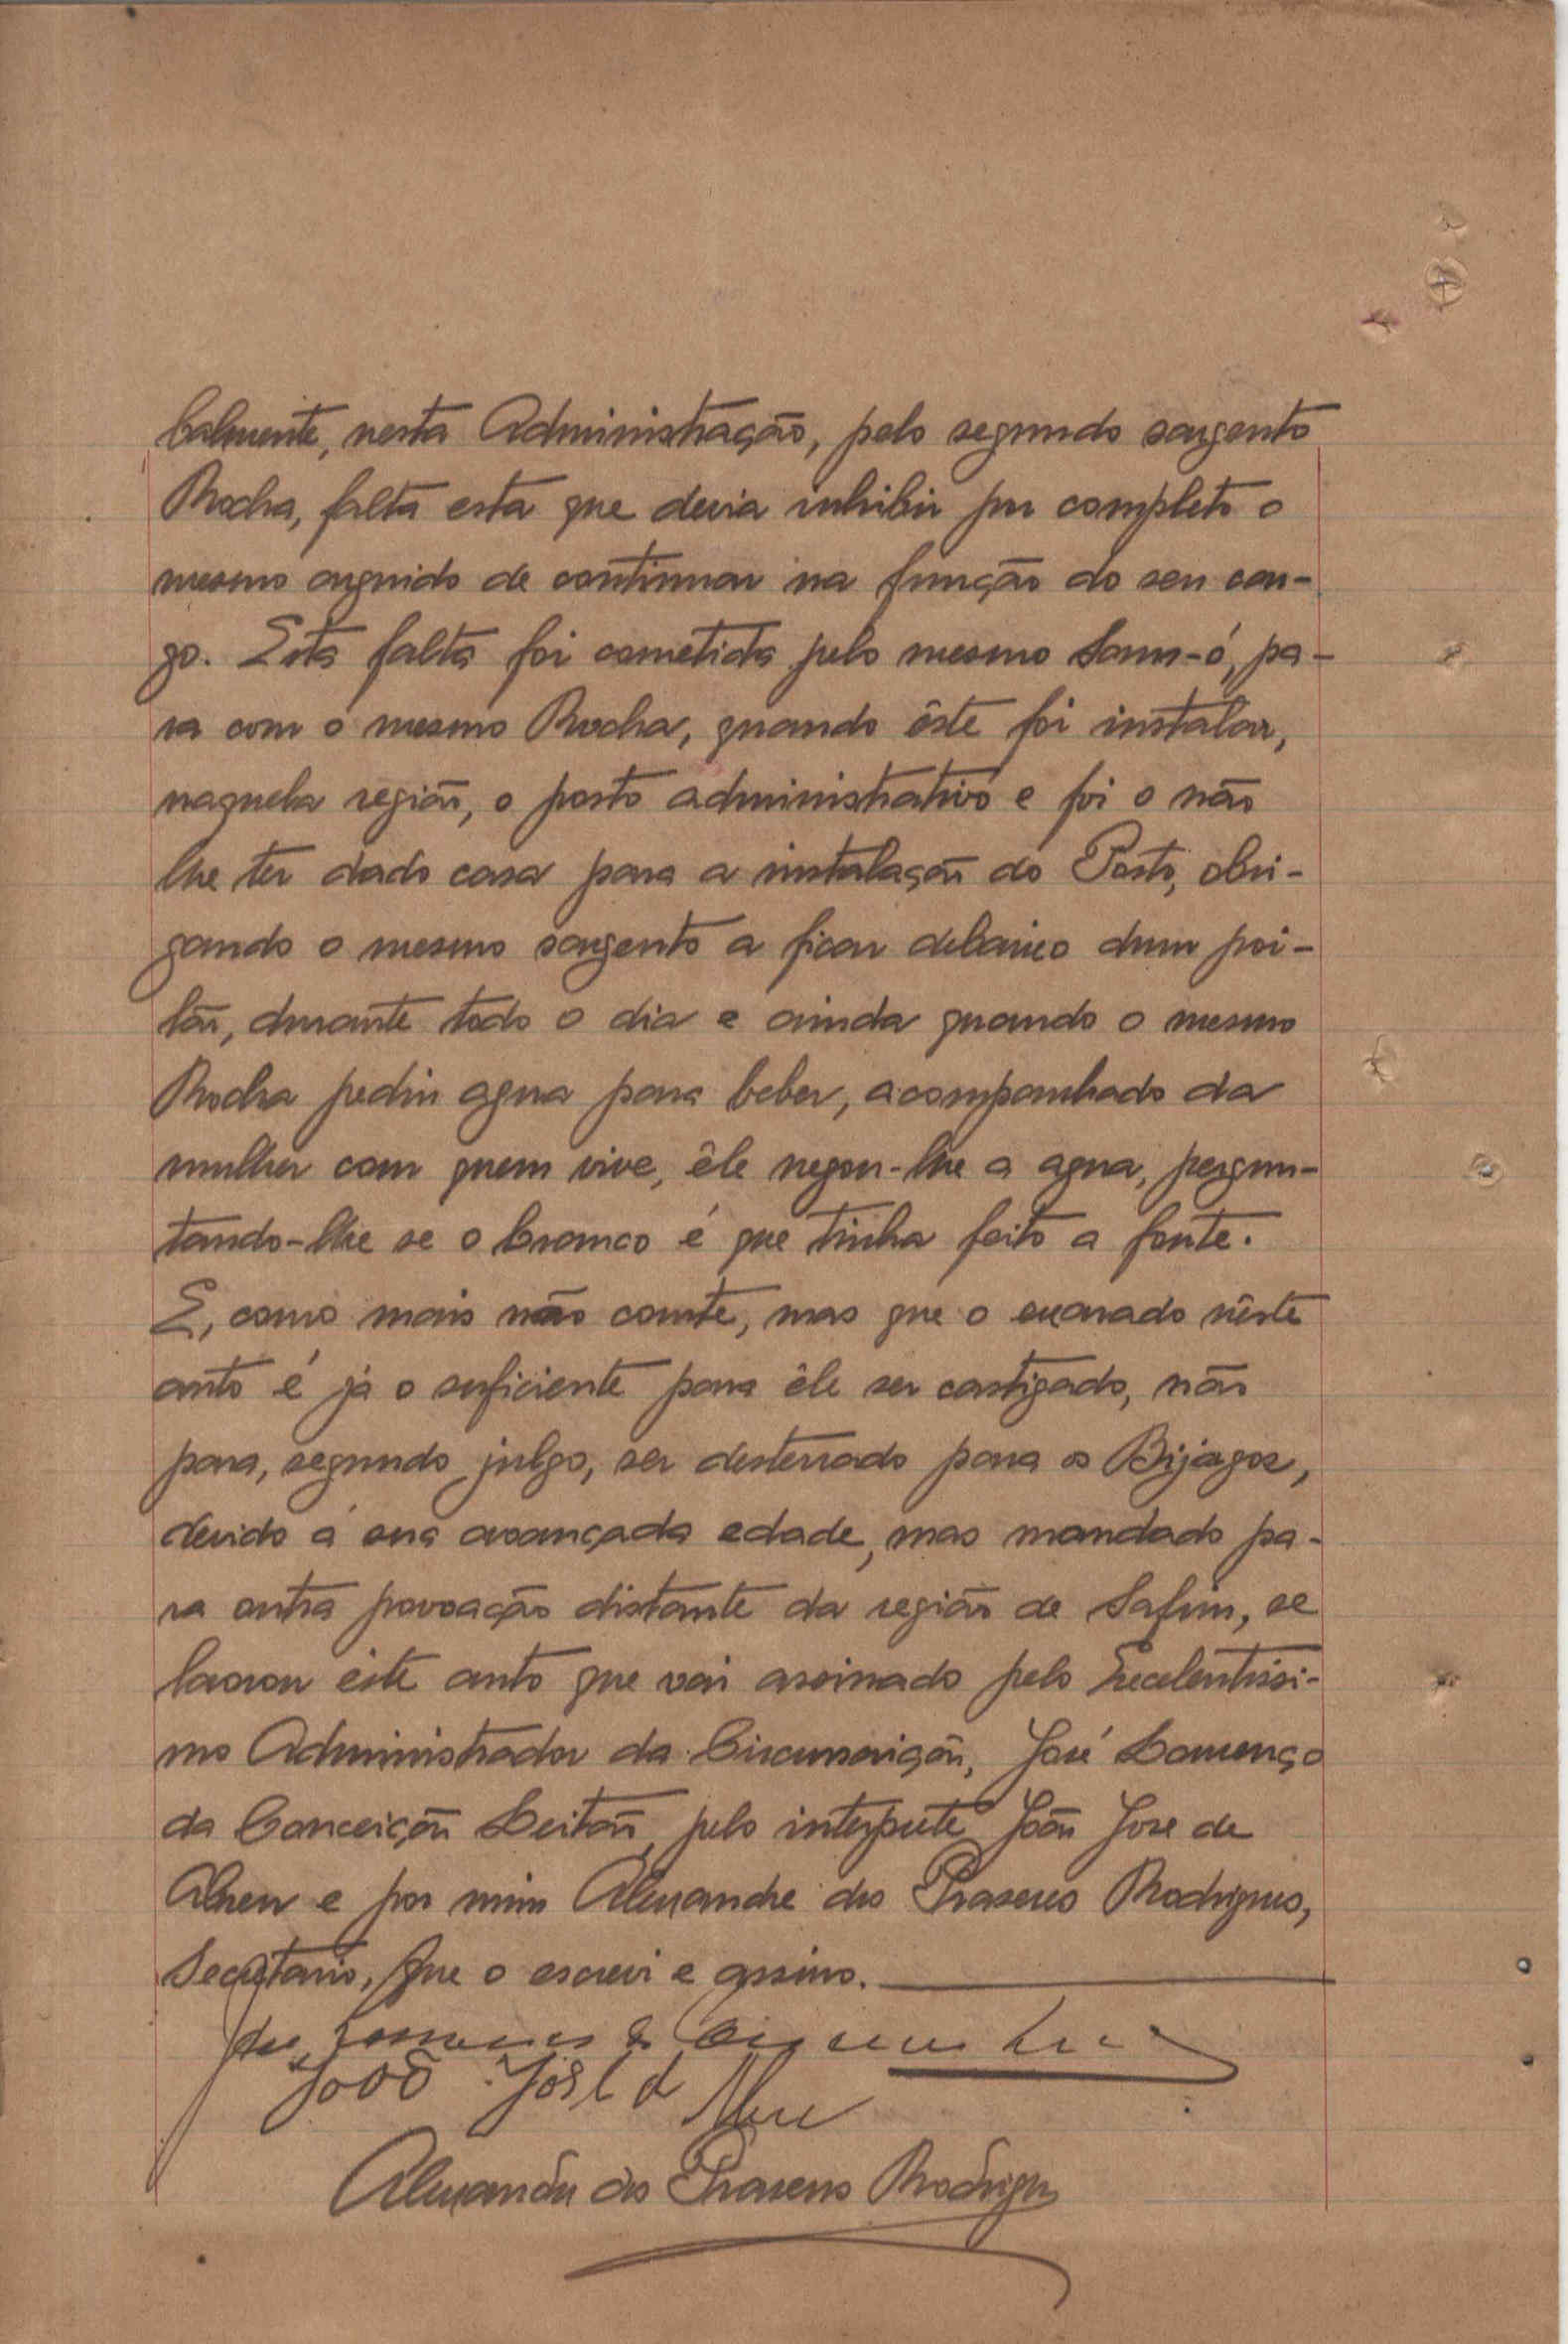 balmente, nesta Administração, pelo segundo sargento
Rocha, falta esta que devia inhibir por completo o
mesmo arguido de continuar na função do seu car-
go. Esta falta foi cometida pelo mesmo Sam-ó, pa-
ra com o mesmo Rocha, quando êste foi instalar,
naquela região, o posto administrativo e foi o não
lhe ter dado casa para a instalação do Posto, obri-
gando o mesmo sargento a ficar debaixo dum poi-
lão, durante todo o dia e ainda quando o mesmo
Rocha pediu agua para beber, acompanhado da
mulher com quem vive, êle negou-lhe a agua, pergun-
tando-lhe se o branco é que tinha feito a fonte.
E, como mais não conste, mas que o exarado nêste
auto é já o suficiente para êle ser castigado, não
para, segundo julgo, ser desterrado para os Bijagoz,
devido á sua avançada edade, mas mandado pa-
ra outra povoação distante da região de Safim, se
lavrou êste auto que vai assinado pelo Excelentissi-
mo Administrador da Circunscrição, José Lourenço
da Conceição Leitão, pelo interprete João José de
Abreu e por mim Alexandre dos Prazeres Rodrigues,
Secretario, que o escrevi e assino.
João José d Abreu
Alexandre dos Prazeres Rodrigues